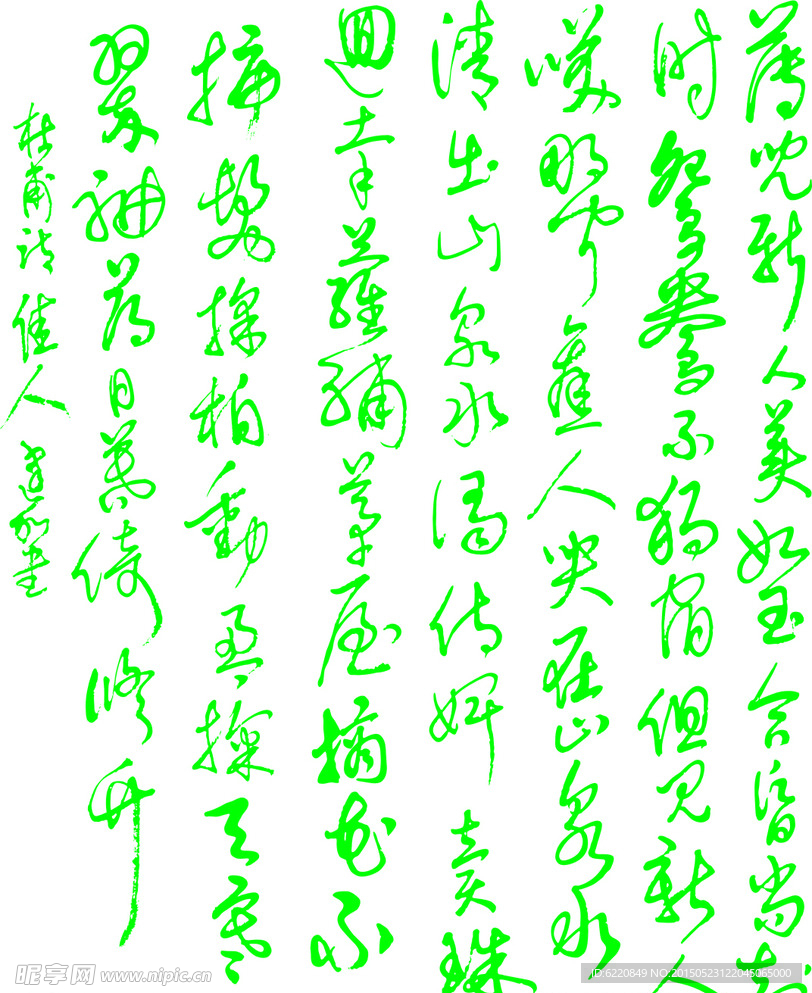 薄兒新人美如玉合昏尚知
时鴛鴦不獨宿但见新人
笑那闻舊人哭在山泉水
清出山泉水濁侍婢賣珠
迴牽蘿補茅屋摘花不
插髮採柏動盈掬天寒
翠袖薄日暮倚修竹
杜甫诗佳人
昵享网 www.nipic.cn
ID:6220849 NO:20150523122045065000